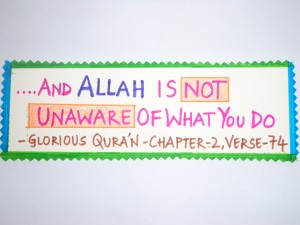 ....AND ALLAH IS NOT
UNAWARE OF WHAT YOU DO
-GLORIOUS QURA'N -CHAPTER-2, VERSE-74